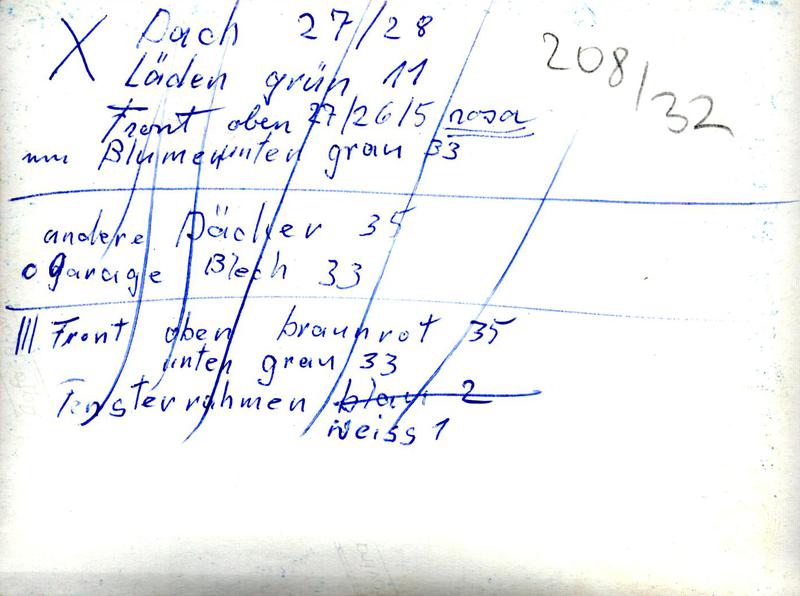 X Dach 27/28
208/32
Läden grün 11
Front oben 27/26/5 rosa
Blumen unten grau 33
andere Dächer 35
o Garage Blech 33
||| Front oben braunrot 35
unten grau 33
Fensterrahmen blau 2
weiss 1